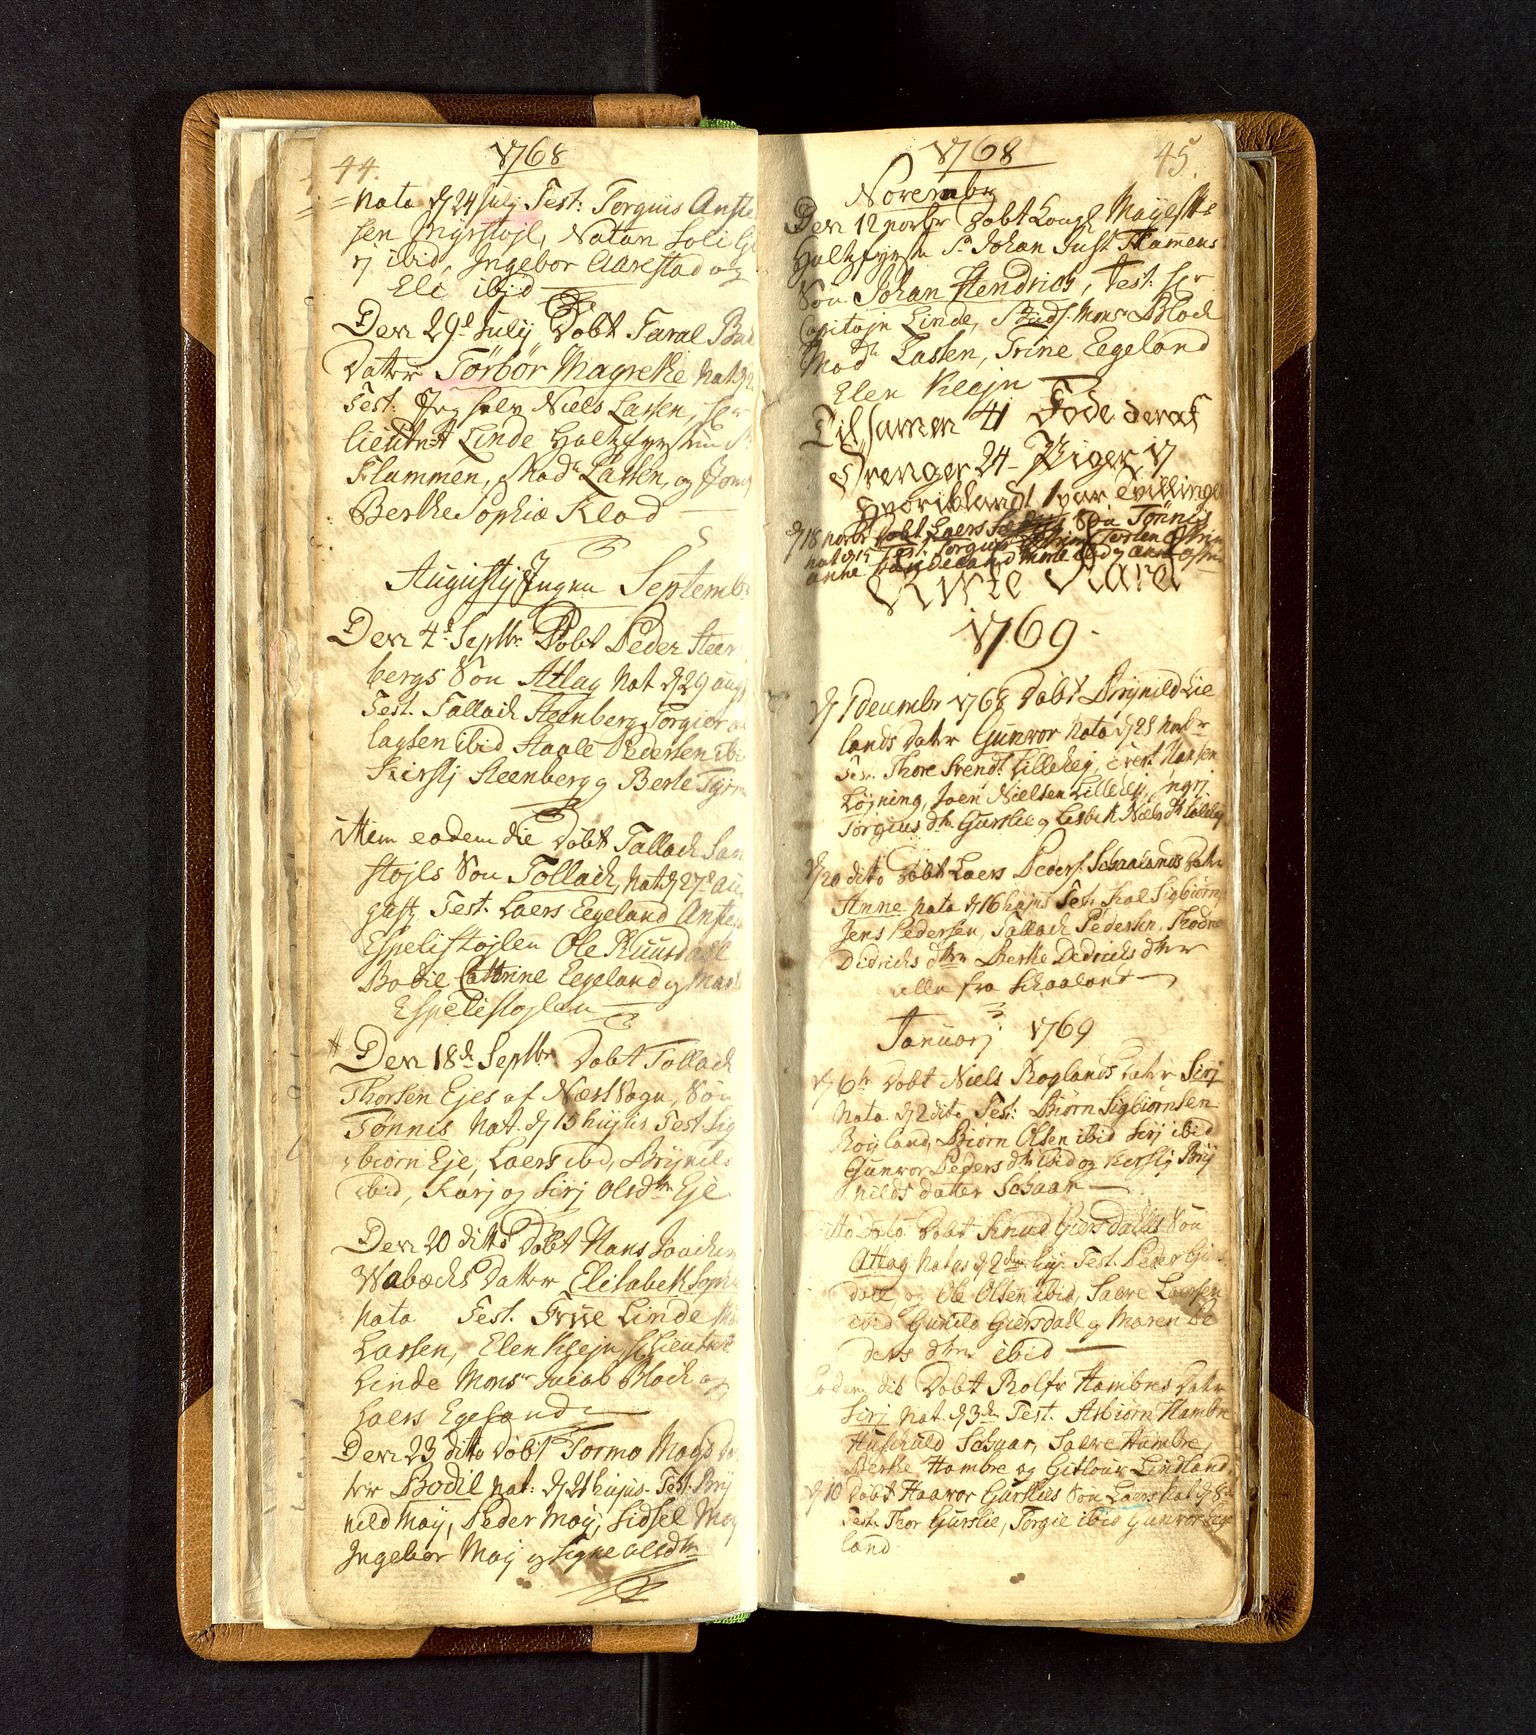 44.
1768
nata d 24 Julj Test: Torguis Anste
sen Myrstøjl, Natan Soli
ibid, Ingebor Aarestad og
Eli ibid
Den 29d July Døbt Taral
Datter Tørbør Magrethe Nat
Test: Jeg selv Niels Lassen, hr
lieutnt Linde
Flammen, Mads Lassen, og
Berthe Sophie Klod
Augustij Ingen Septembr
Den 4d Septbr Døbt Peder Steen
bergs Søn Atlag Nat d 29 aug
Test. Tallach Steenberg Torgier
lagsen ibid Staale Pedersen ibi
Kirstj Steenberg og Berte
Item eodem die Døbt Tallach
støjls Søn Tollach, Nat d 27d au
gusti Test. Laers Egeland
Espelistøjlen Ole Ruusdall
Bodil Cathrine Egeland og
Espelistøjlen
Den 18d Septbr Døbt Tollach
Thorsen Ejes af Næs Sogn, Søn
Tønnis Nat. d 15 hujus Test. Sig
biørn Eje, Laers ibid, Brynild
ibid, Karj og Sirj Olsdtr Eje
Den 20 ditto Døbt Hans Joachim
Wabæchs Datter Elisabeth Sophi
Nata Test. Frue Linde
Lassen, Elen Klejn,
Linde Mons. Jacob Bloch og
Laers Egeland
Den 23 ditto Døbt Tormo Mojs Da
ter Bodil nat: d 21 hujus. Test. Brÿ
nild Moij, Peder Moij, Sidsel Moij
Ingebor Moij og Signe Olsdtr
1768
45.
Novembr
Den 12 novbr Døbt Kongl Mayesttz
Sr Johan Just Flamens
Søn Johan Hendrich, Test. hr
Capitajn Linde, Mons Bloch
Mad Lassen, Trine Egeland
Elen Klejn
Tilsamen 41 Føde deraf
Drenger 24 - Piger 17
Hvoriblandt 1 par Tvillinger
d 18 novbr Døbt Laers Søn Tønnis
nat d 15 Test. Torguis
anne
1769
d 1 decembr 1768 Døbt Brynild Lie
lands Datr Gunvor Nata d 28 novbr
Test. Thore Svends Lillehej, Evert Hansen
Løjning, Joen Nielsen Lillehej, Ingrj
Torgius dtr Gursli og Lisbet Niels dtr Lillehej
d 20 dito Døbt Laers Peders. Schaalands Datr
Anne nata d 16 hujus Test. Sigbiørns
Jens Pedersen, Tallach Pedersen, Thodne
Didrichs dtr Berthe Didrichs dtr
alle fra Schaaland
Januarj 1769
d 6te Døbt Niels Roglands Datr Sirj
Nata d 2 dito Test: Biørn Sigbiørnsen
Rogland, Biørn Olsen ibid Sirj ibid
Gunvor Peders dtr ibid og Kirstj Brÿ
nilds datter Schaar
Ditto Dato Døbt Knud Giersdalls Søn
Attlag Natus d 2den huj. Test. Peder Giers
dall og Ole Olsen ibid, Sacre Laersen
ibid Gunild Giersdall og Maren Pe
ders dtr ibid
Eodem die Døbt Rolfv Hambres Datr
Sirj nat d 3d Test. Asbiørn Hambre
Schaar, Sacre Hambre,
Berthe Hambre og Gitlour Lindland
d 10 Døbt Haavor Gurslies Søn Laers Nat d 8d
Test. Thor Gurslie, Torgie ibid Gunvor
land